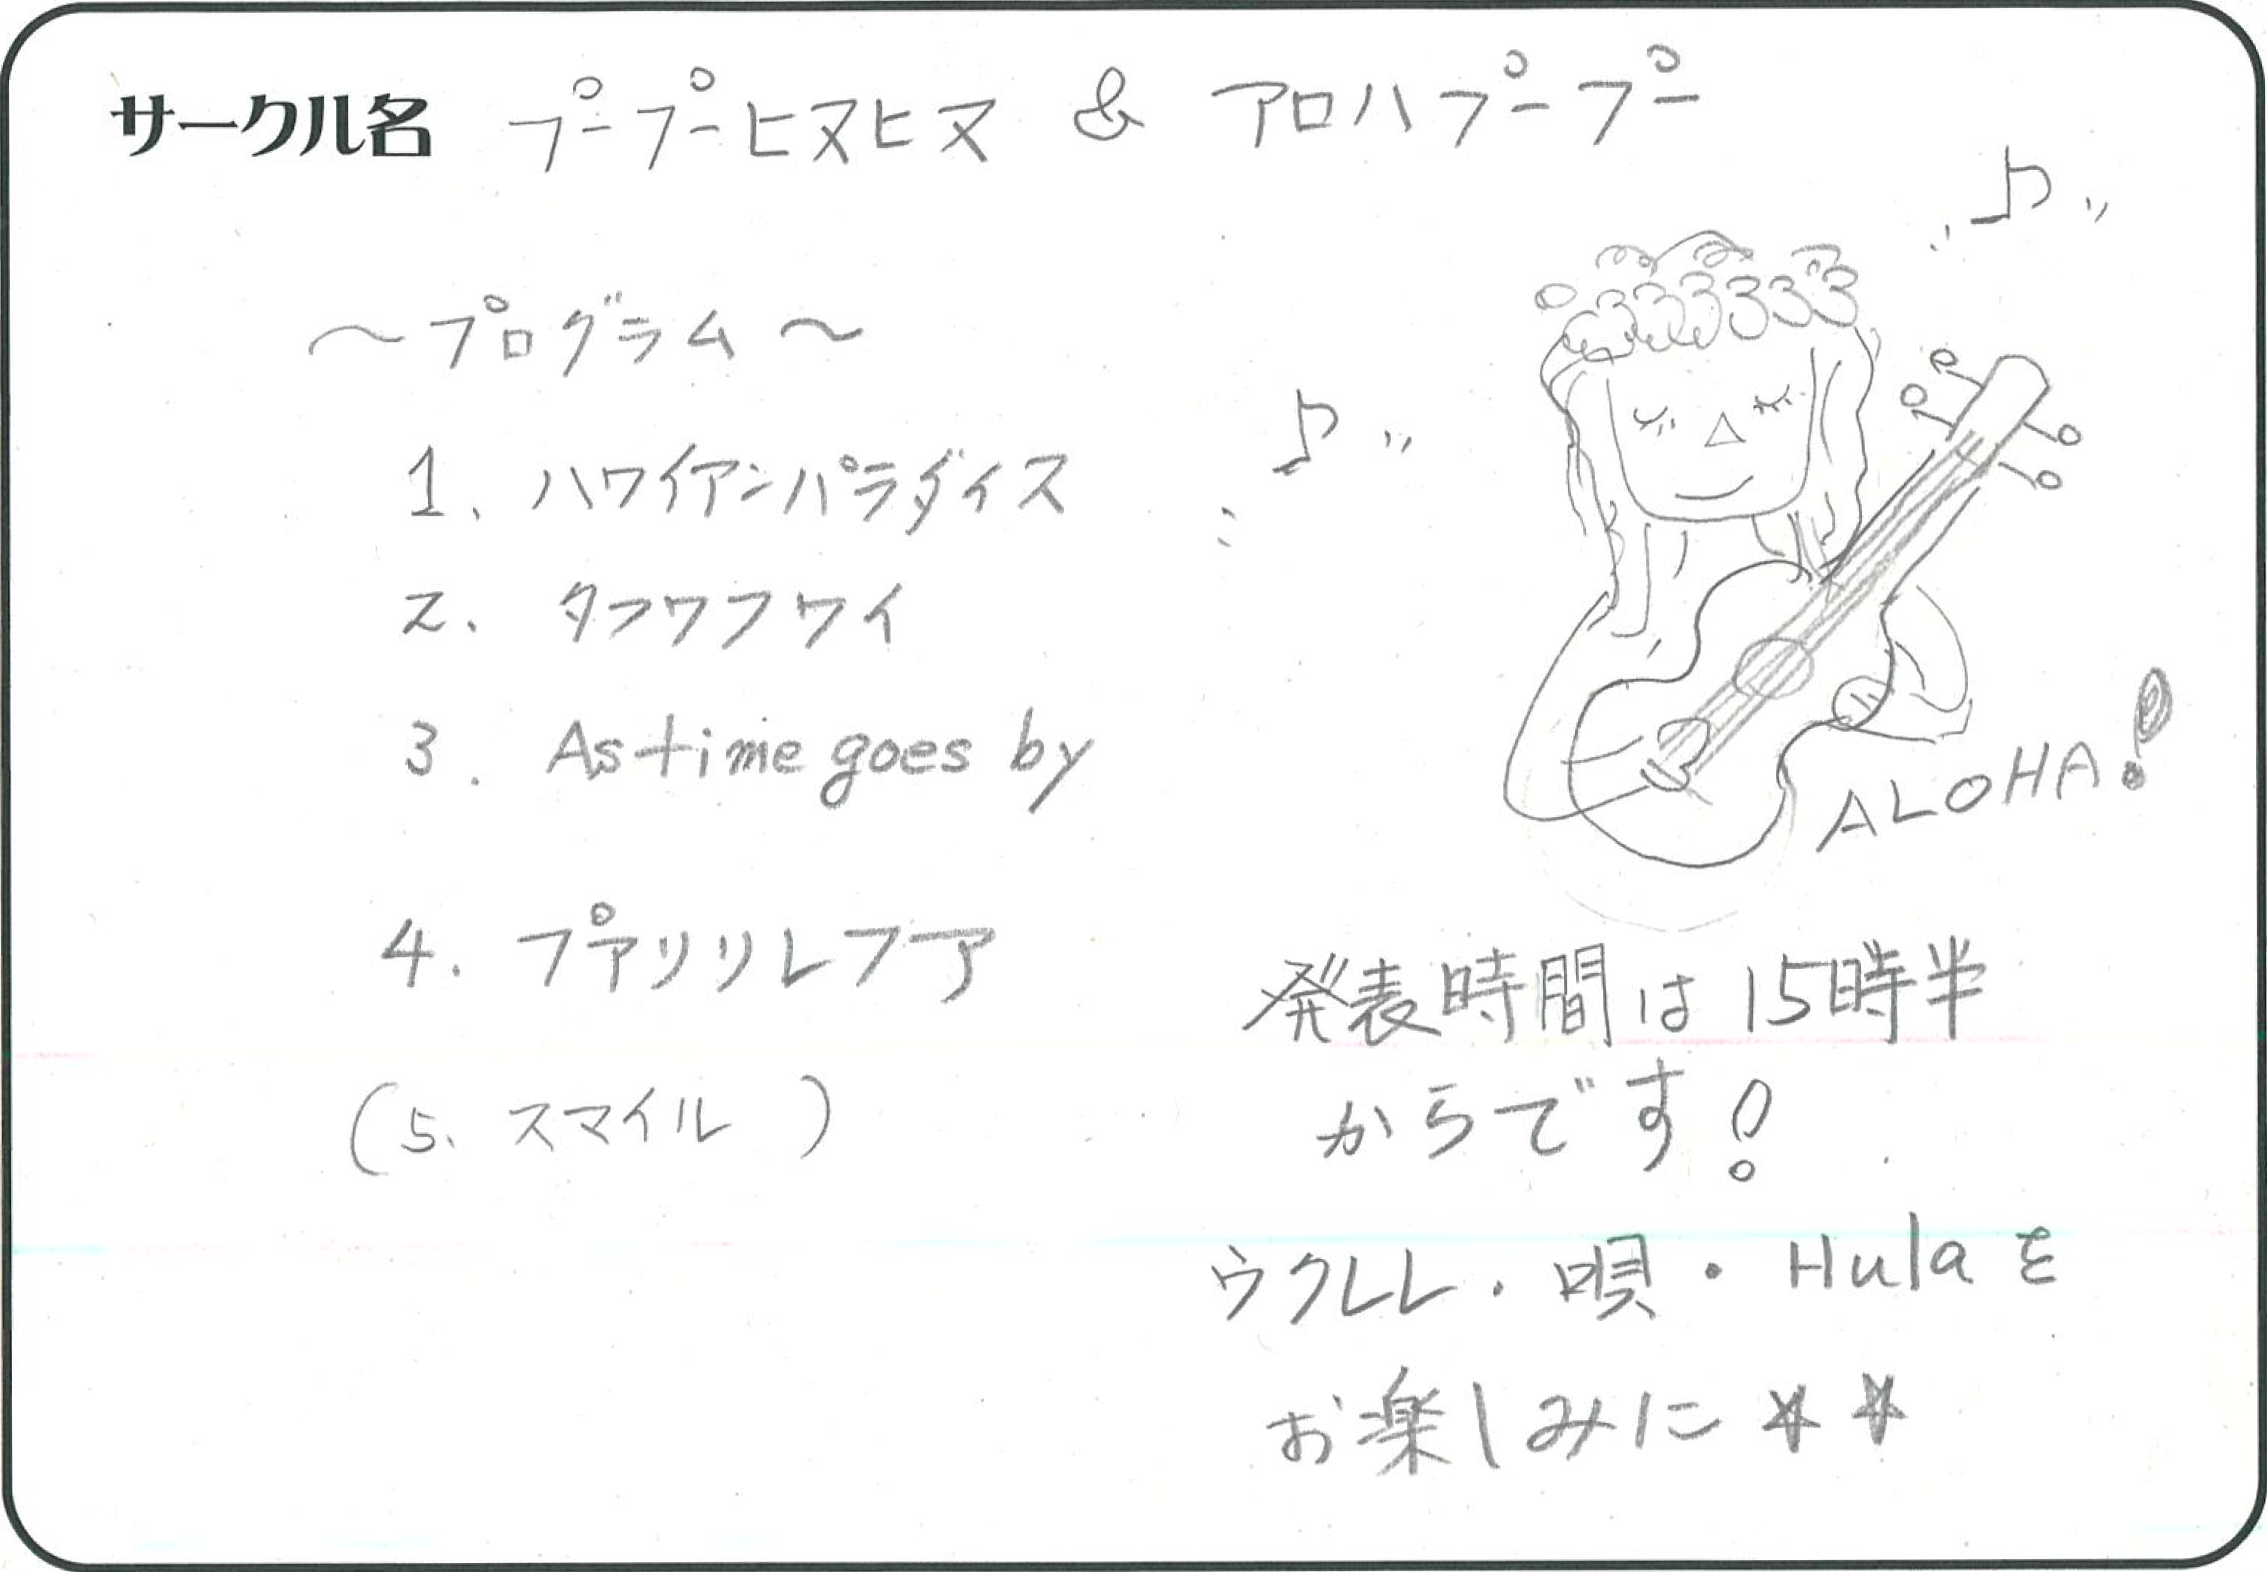 サークル名 プープーヒヌヒヌ & アロハプープー
～プログラム～
1、ハワイアンパラダイス
2、タフワフワイ
3. As time goes by
4. プアリリレフア
(5、スマイル )
ALOHA!
発表時間は15時半
からです!
ウクレレ・唄・Hulaを
お楽しみに☆☆